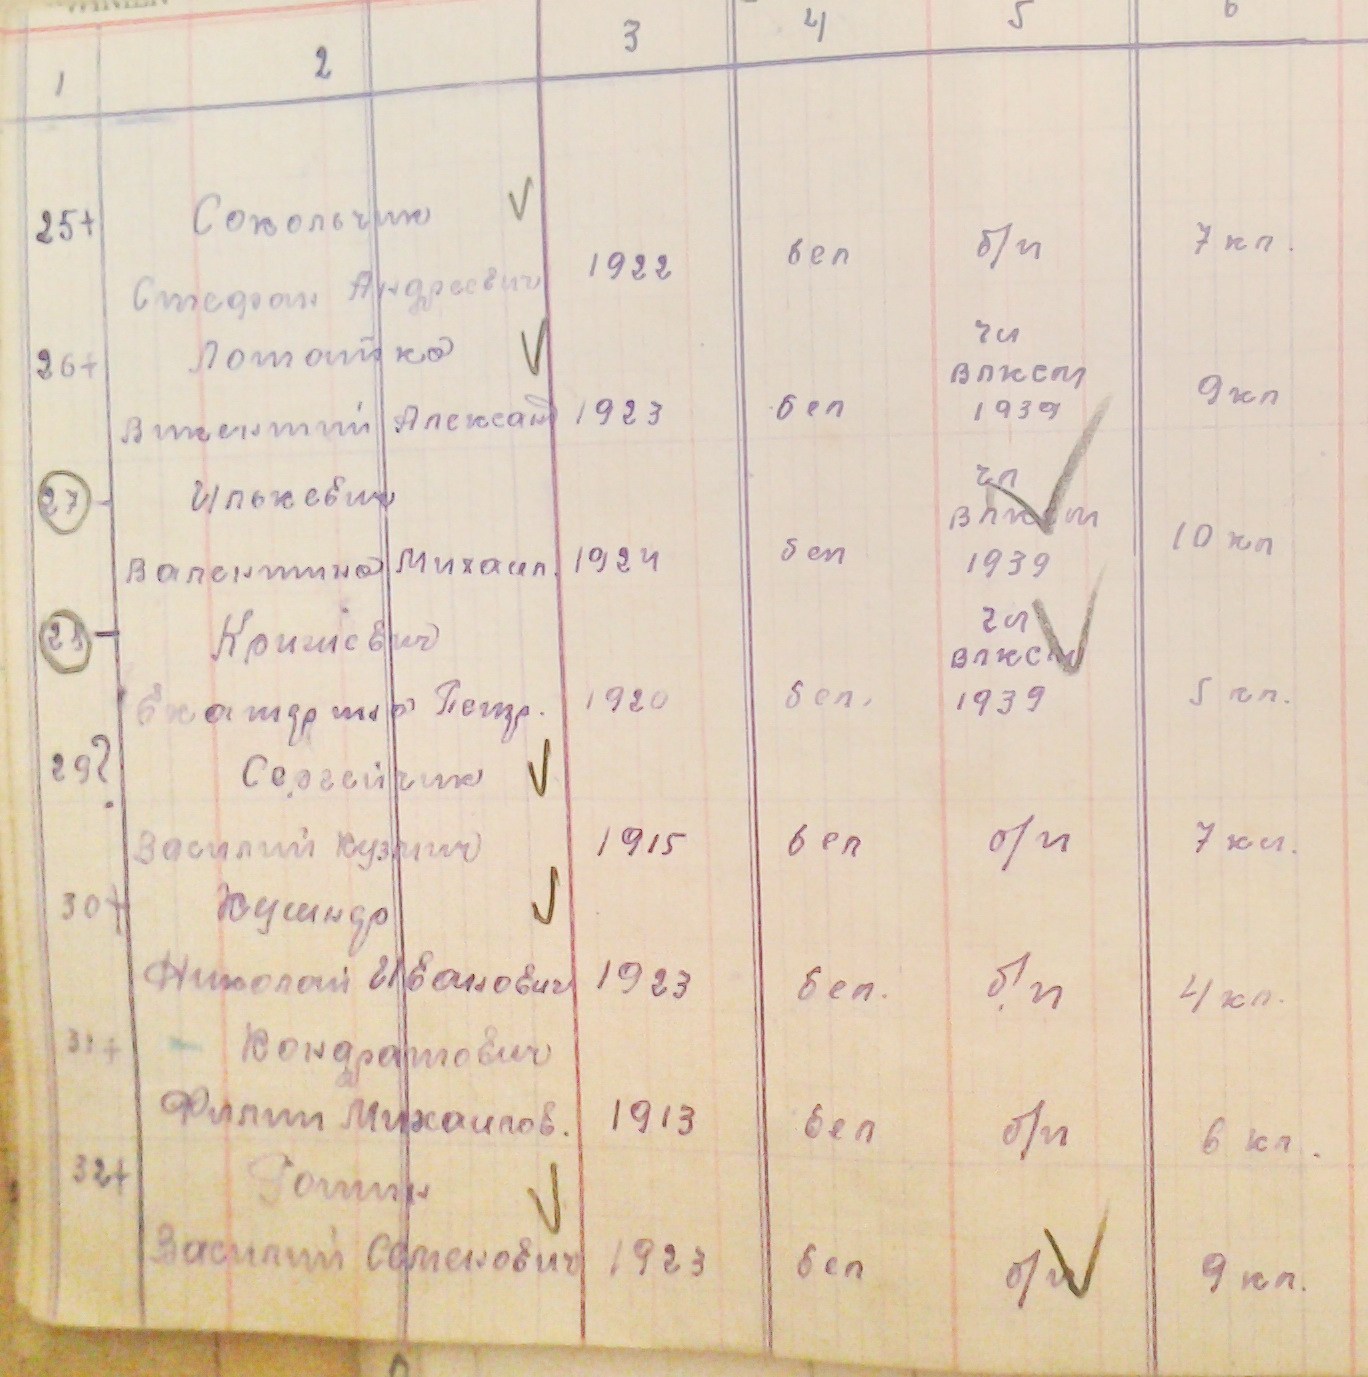 1 2 3 4 5 6
25+ Сокольчик
Стефан Андреевич 1922 бел б/п 7 кл.
26+ Лотайко чл
Викентий Алексан 1923 бел ВЛКСМ 9 кл
1939
27 - Илькевич чл
Валентина Михаил. 1924 бел ВЛКСМ 10 кл
1939
28 - чл
ВЛКСМ
Петр. 1920 бел. 1939 5 кл.
29? Сергейчик
Василий Кузмич 1915 бел б/п 7 кл.
30+
Николай Иванович 1923 бел. б/п 4 кл.
31+ - Кондратович
Филип Михаилов. 1913 бел б/п 6 кл.
32+
Василий Семенович 1923 бел б/п 9 кл.